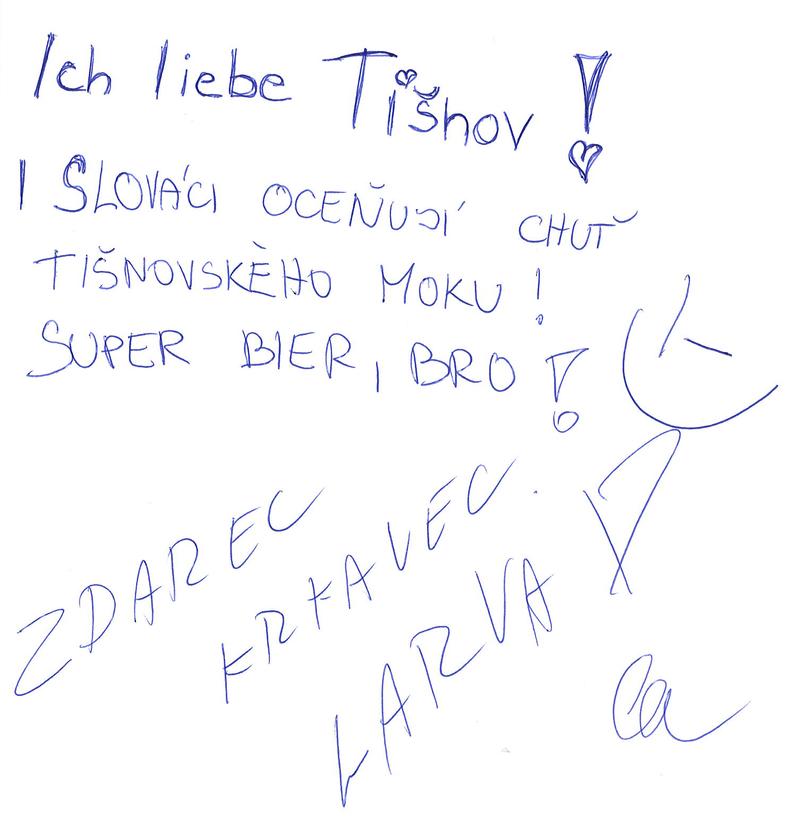 Ich liebe Tišnov!
I SLOVÁCI OCEŇUJÍ CHUŤ
TIŠNOVSKÉHO MOKU!
SUPER BIER, BRO!
ZDAREC
KRKAVEC.
LARVA!